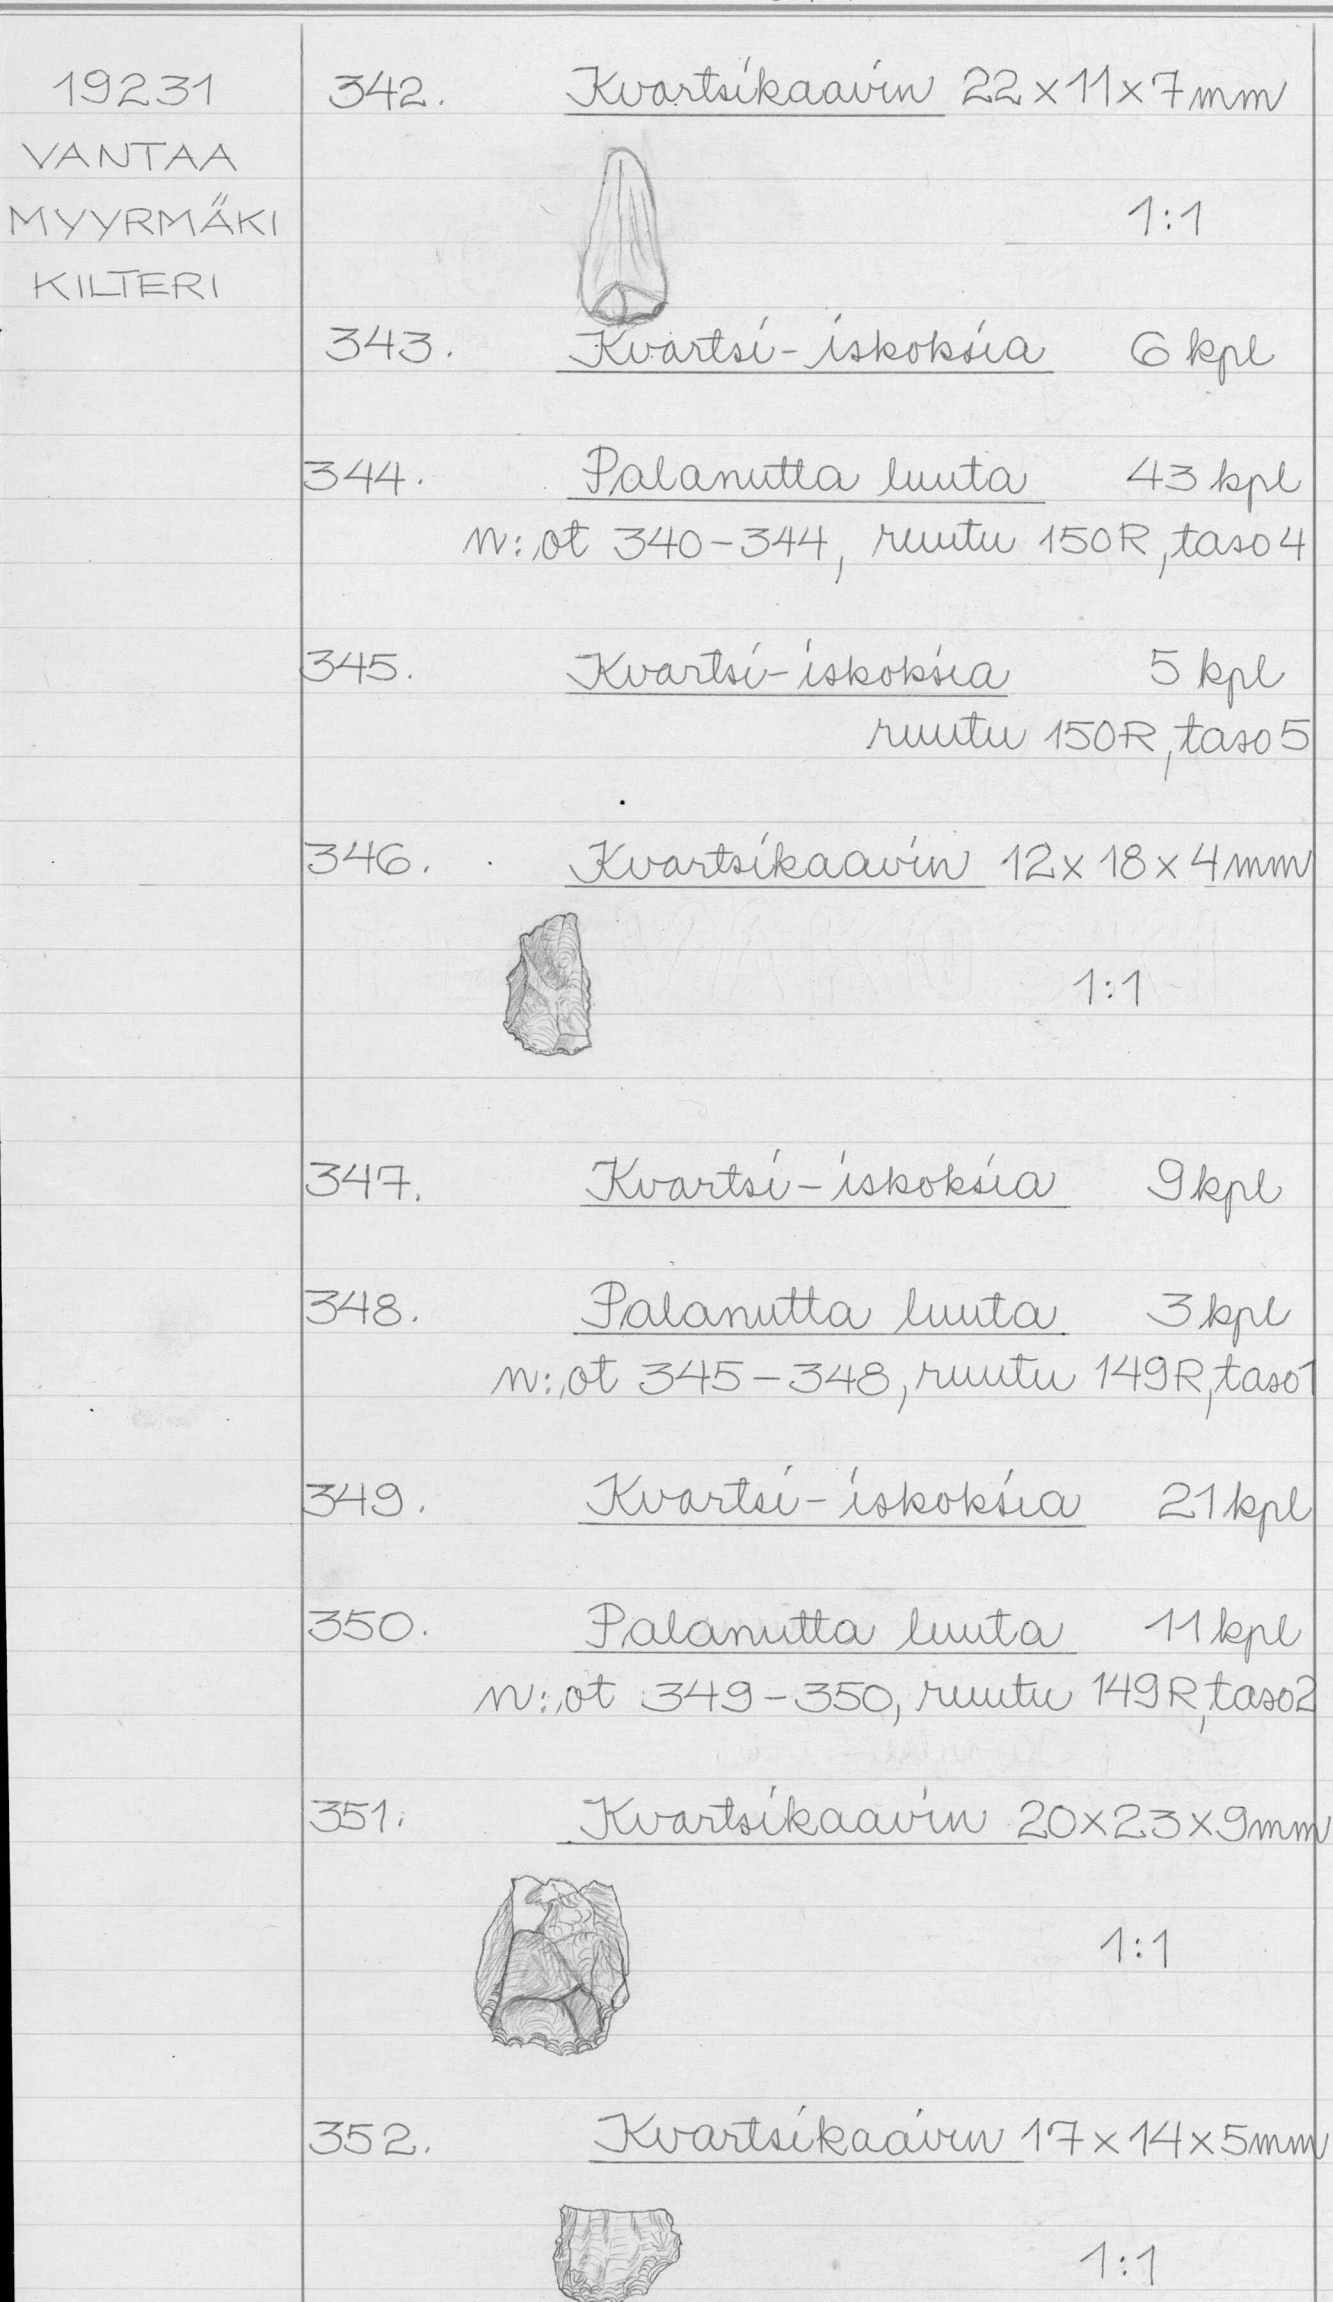 19231
VANTAA
MYYRMÄKI
KILTERI
342. Kvartsikaavin 22 x 11 x 7 mm
1:1
343. Kvartsi-iskoksia 6 kpl
344. Palanutta luuta 43 kpl
n:ot 340-344, ruutu 150R, taso 4
345. Kvartsi-iskoksia 5 kpl
ruutu 150R, taso 5
346. Kvartsikaavin 12 x 18 x 4 mm
1:1
347. Kvartsi-iskoksia 9 kpl
348. Palanutta luuta 3 kpl
n:ot 345-348, ruutu 149R, taso 1
349. Kvartsi-iskoksia 21 kpl
350. Palanutta luuta 11 kpl
n:ot 349-350, ruutu 149R, taso 2
351. Kvartsikaavin 20 x 23 x 9 mm
1:1
352. Kvartsikaavin 17 x 14 x 5 mm
1:1